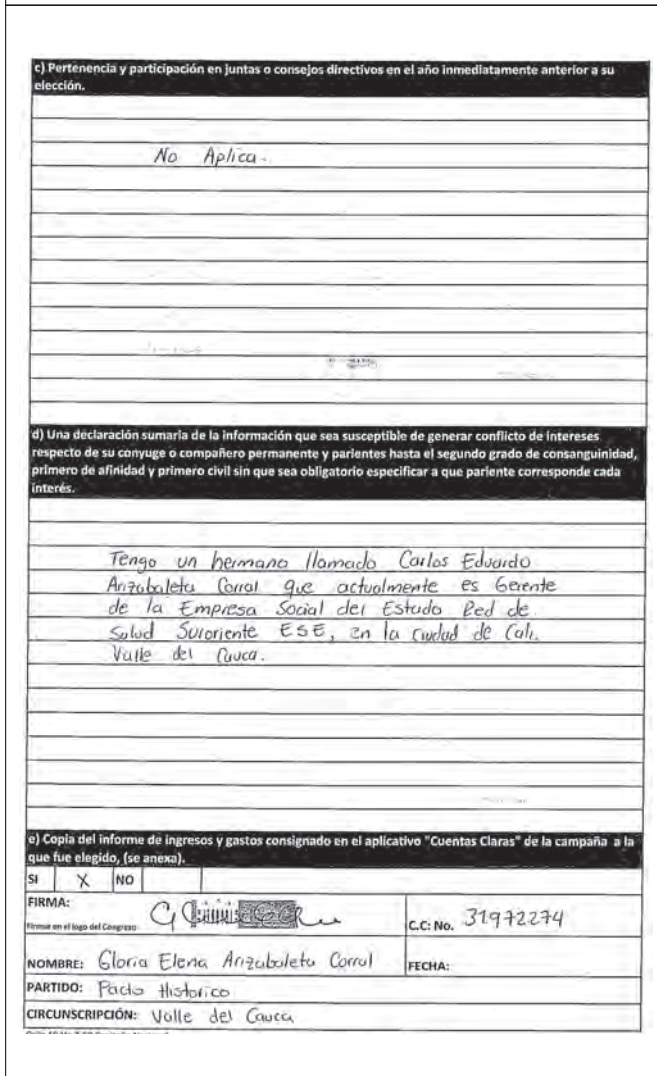 c) Pertenencia y participación en juntas o consejos directivos en el año inmediatamente anterior a su
elección.
No Aplica.
d) Una declaración sumaria de la información que sea susceptible de generar conflicto de intereses
respecto de su conyuge o compañero permanente y parientes hasta el segundo grado de consanguinidad,
primero de afinidad y primero civil sin que sea obligatorio especificar a que pariente corresponde cada
interés.
Tengo un hermano llamado Carlos Eduardo
Arizabaleta Corral que actualmente es Gerente
de la Empresa Social del Estado Red de
Salud Suroriente ESE, en la ciudad de Cali.
Valle del Cauca.
e) Copia del informe de ingresos y gastos consignado en el aplicativo "Cuentas Claras" de la campaña a la
que fue elegido, (se anexa).
SI X NO
FIRMA:
Firmar en el logo del Congreso
C.C: No. 31972274
NOMBRE: Gloria Elena Arizabaleta Corral FECHA:
PARTIDO: Pacto Historico
CIRCUNSCRIPCIÓN: Valle del Cauca